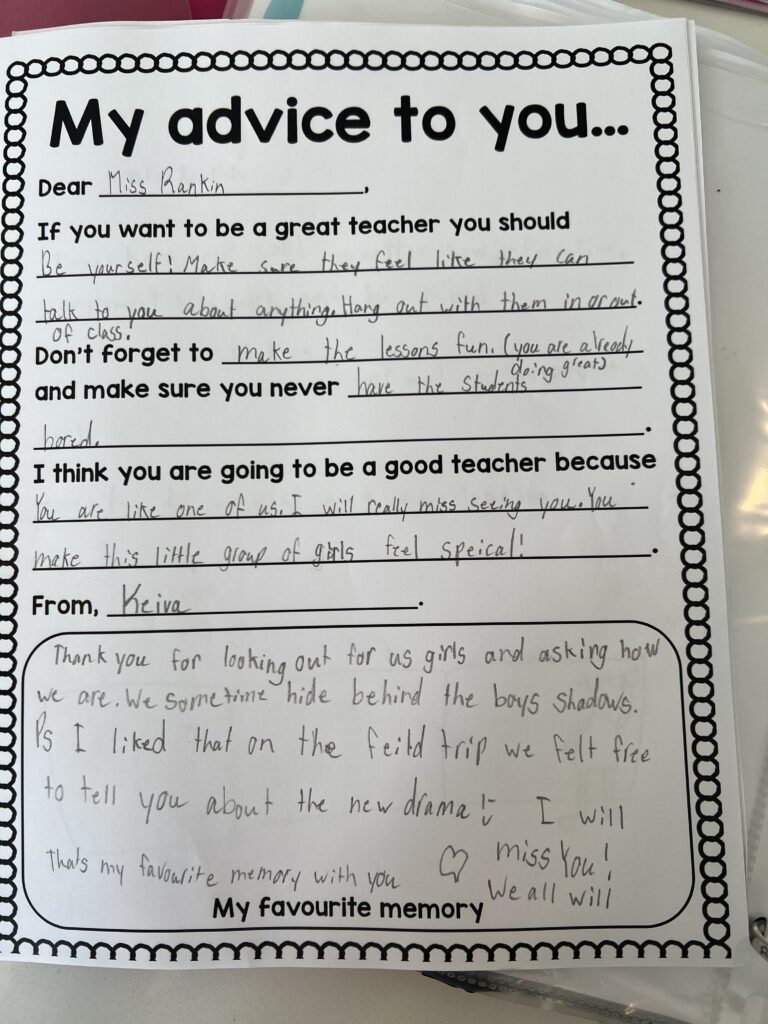 My advice to you...
Dear Miss Rankin,
If you want to be a great teacher you should
Be yourself! Make sure they feel like they can
talk to you about anything. Hang out with them in or out.
of class.
Don't forget to make the lessons fun. (you are already
doing great)
and make sure you never have the students
bored.
I think you are going to be a good teacher because
You are like one of us. I will really miss seeing you. You
make this little group of girls feel speical!.
From, Keiva.
Thank you for looking out for us girls and asking how
we are. We sometime hide behind the boys shadows.
Ps I liked that on the feild trip we felt free
to tell you about the new drama! I will
miss You!
We all will
Thats my favourite memory with you
My favourite memory